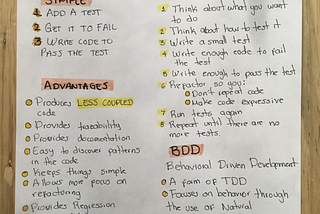 SIMPLE
1 ADD A TEST
2 GET IT TO FAIL
3 WRITE CODE TO
PASS THE TEST
ADVANTAGES
Produces LESS COUPLED
code
Provides testability
Provides documentation
Easy to discover patterns
in the code
Keeps things simple
Allows more focus on
refactoring
Provides Regression
1 Think about what you want
to do
2 Think about how to test it
3 Write a small test
4 Write enough code to fail
the test
5 Write enough to pass the test
6 Refactor so you:
Don't repeat code
Make code expressive
7 Run tests again
8 Repeat until there are no
more tests.
BDD
Behavioral Driven Development
A form of TDD
Focuses on behavior through
the use of Natural